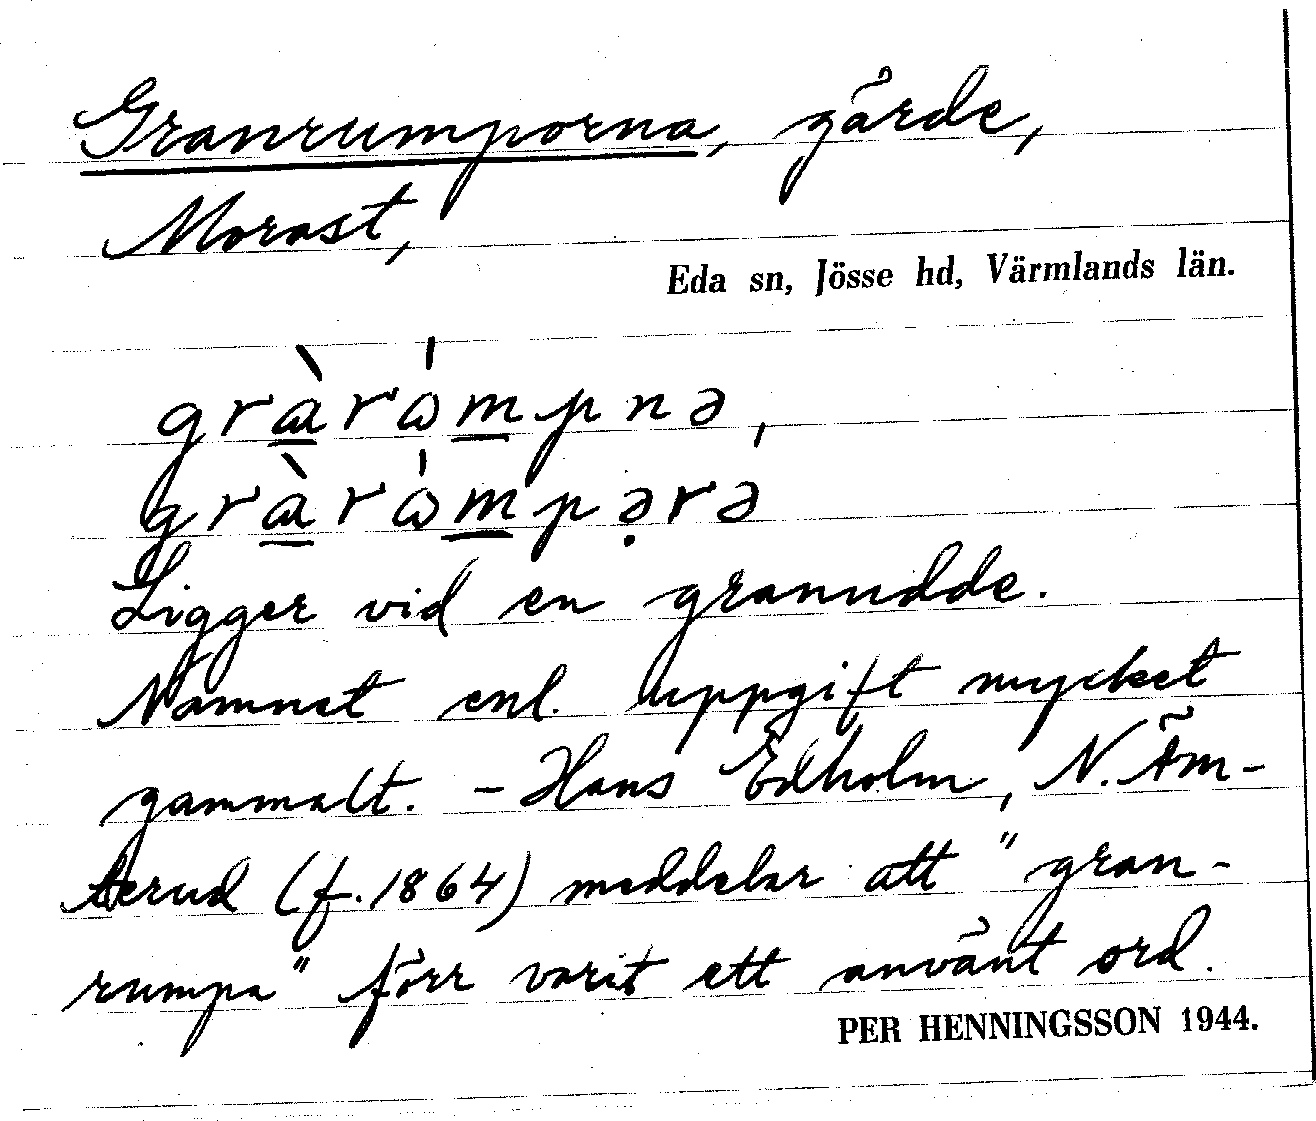 Granrumporna, gärde,
Morast,
Eda sn, Jösse hd, Värmlands län.
gràrómpnə,
gràrómpərə
Ligger vid en granudde.
Namnet enl. uppgift mycket
gammalt. - Hans Edholm, N. Äm-
terud (f. 1864) meddelar att "gran-
rumpa" förr varit ett använt ord.
PER HENNINGSSON 1944.